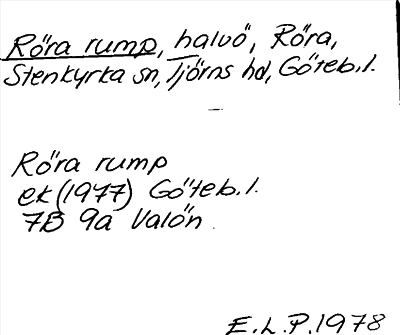 Röra rump, halvö, Röra,
Stenkyrka sn, Tjörns hd, Göteb. l.
Röra rump
ek (1977) Göteb. l.
7B 9a Valön
E. L. P. 1978